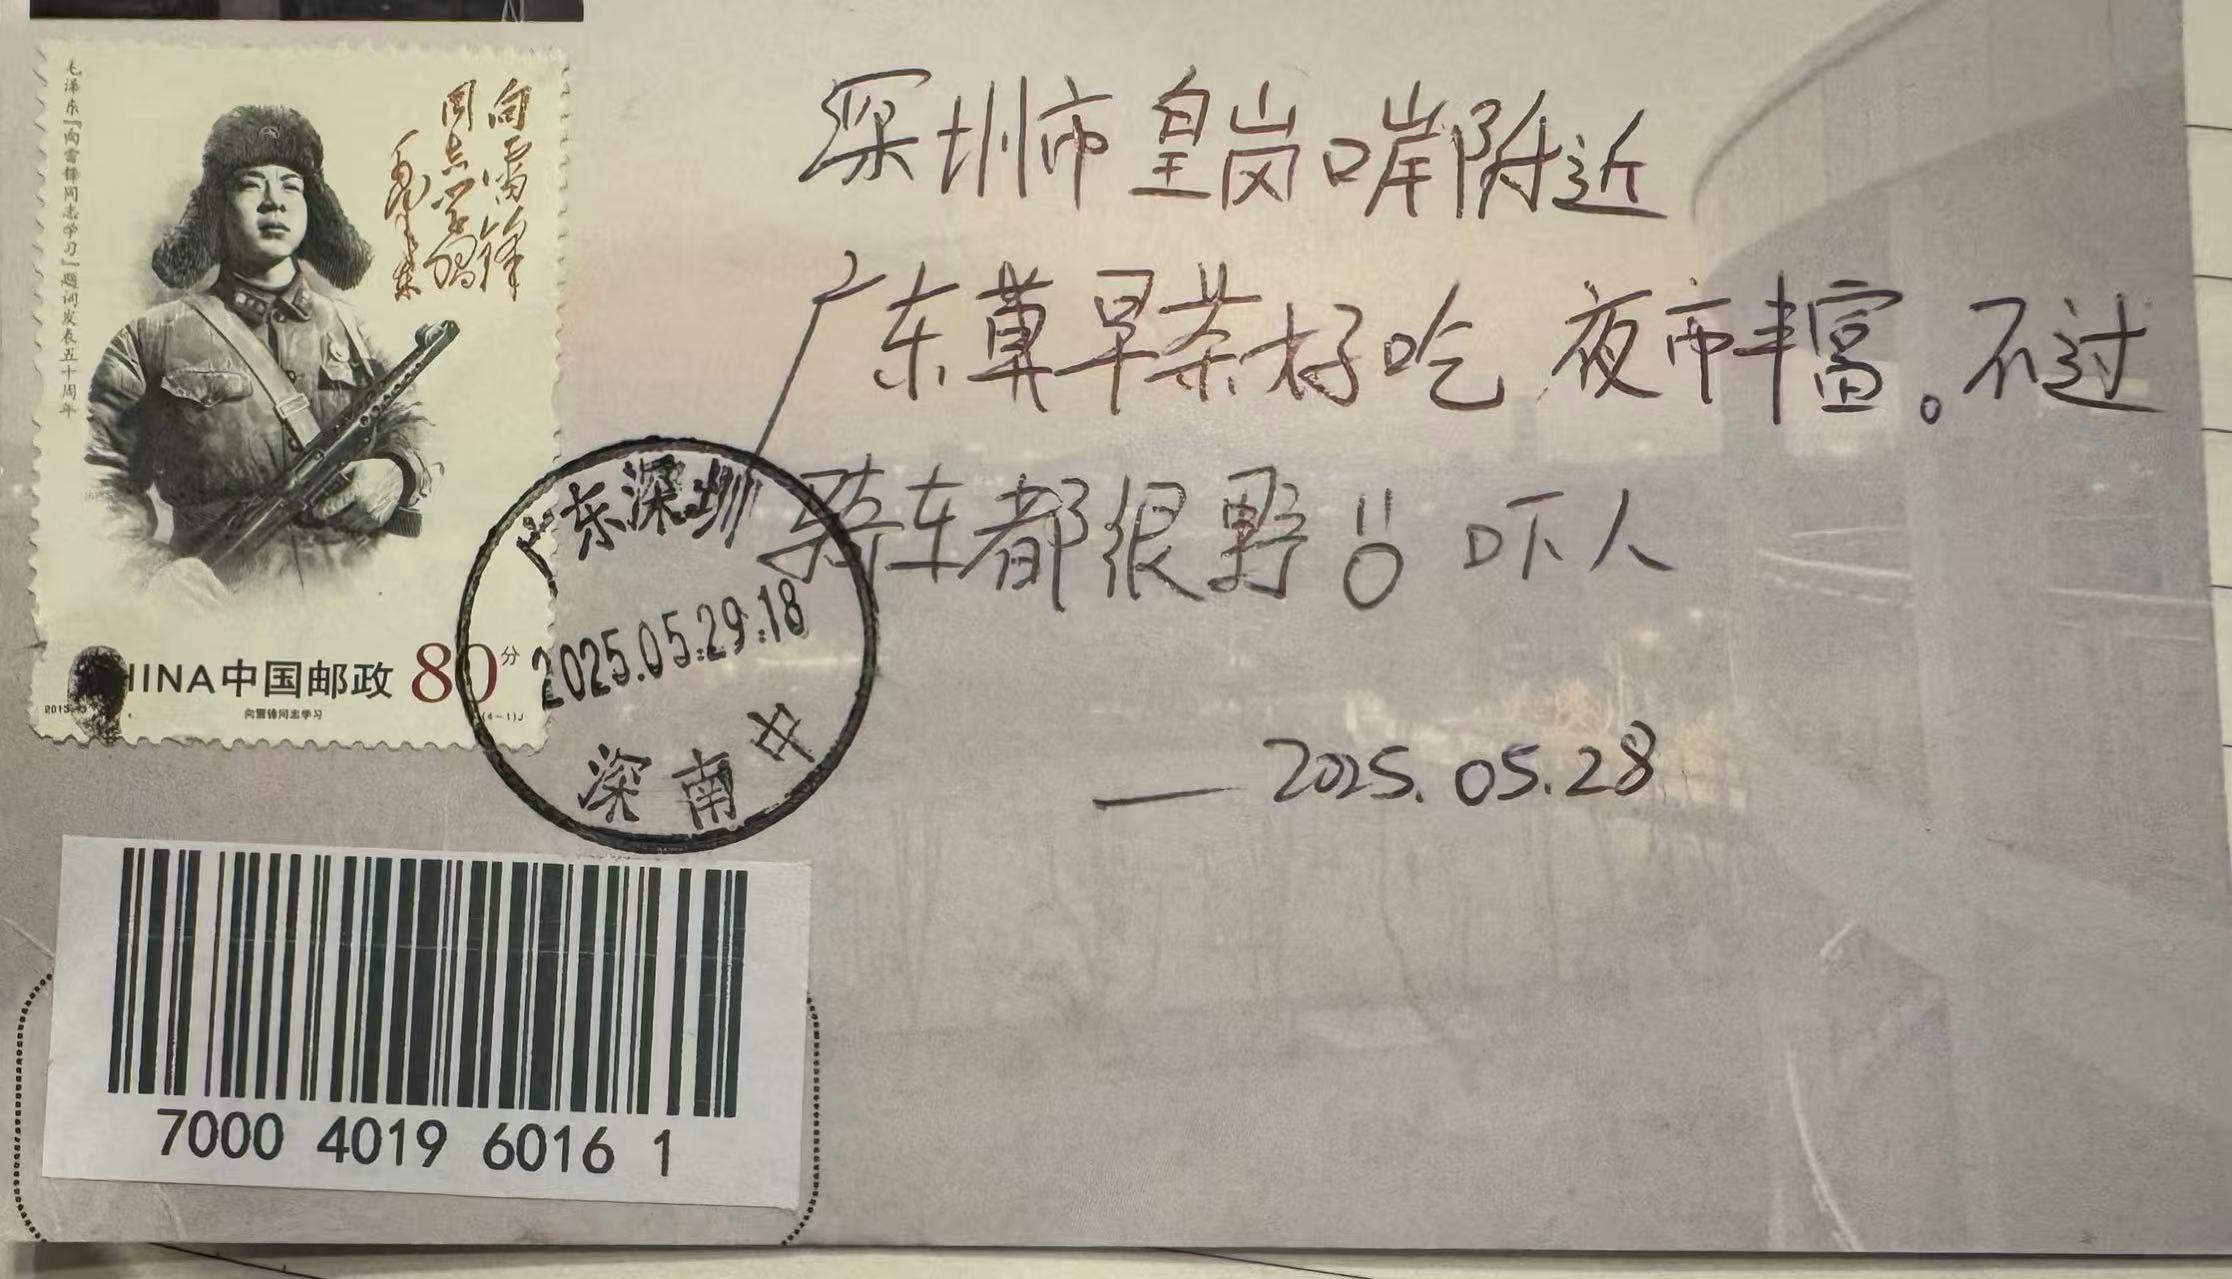 毛泽东“向雷锋同志学习”题词发表五十周年
向雷锋
同志学习
毛泽东
CHINA中国邮政 80分
向雷锋同志学习
(4-1)J
广东深圳
2025.05.29.18
深南中
7000 4019 6016 1
深圳市皇岗口岸附近
广东莫早茶好吃 夜市丰富。不过
骑车都很野!! 吓人
— 2025.05.28